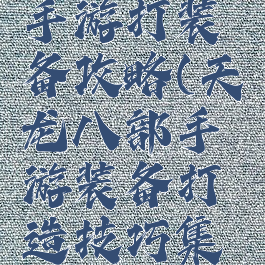 手游打装
备攻略(天
龙八部手
游装备打
造技巧集